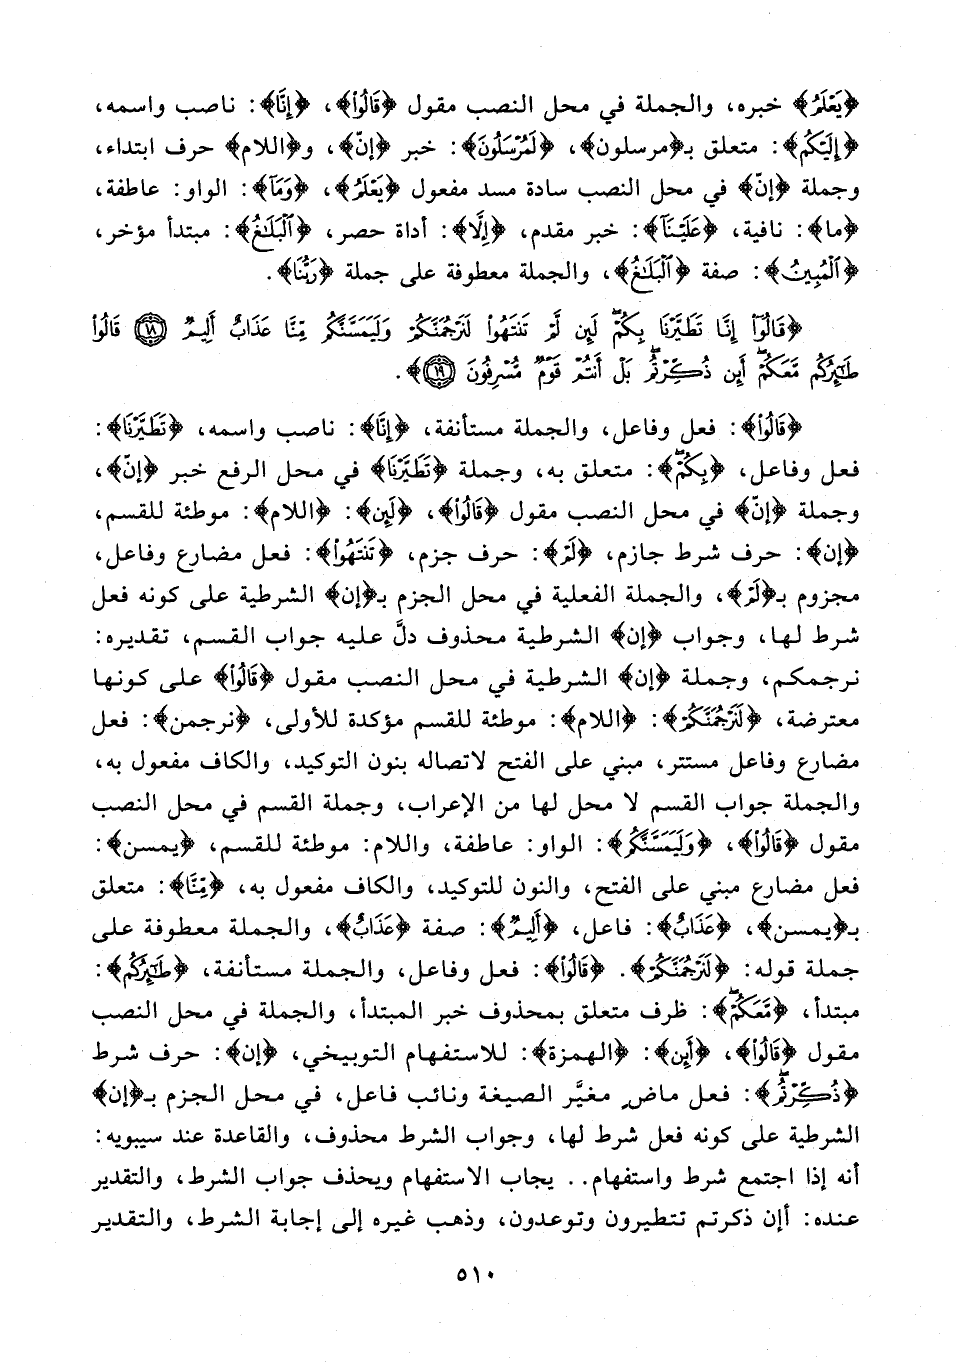 ﴿يَعْلَمُ﴾ خبره، والجملة في محل النصب مقول ﴿قَالُوا﴾، ﴿إِنَّا﴾: ناصب واسمه،
﴿إِلَيْكُمْ﴾: متعلق بـ﴿مرسلون﴾، ﴿لَمُرْسَلُونَ﴾: خبر ﴿إنّ﴾، و﴿اللام﴾ حرف ابتداء،
وجملة ﴿إنّ﴾ في محل النصب سادة مسد مفعول ﴿يَعْلَمُ﴾، ﴿وَمَا﴾: الواو: عاطفة،
﴿ما﴾: نافية، ﴿عَلَيْنَا﴾: خبر مقدم، ﴿إِلَّا﴾: أداة حصر، ﴿ٱلْبَلَٰغُ﴾: مبتدأ مؤخر،
﴿ٱلْمُبِينُ﴾: صفة ﴿ٱلْبَلَٰغُ﴾، والجملة معطوفة على جملة ﴿رَبُّنَا﴾.
﴿قَالُوٓا۟ إِنَّا تَطَيَّرْنَا بِكُمْ ۖ لَئِن لَّمْ تَنتَهُوا۟ لَنَرْجُمَنَّكُمْ وَلَيَمَسَّنَّكُم مِّنَّا عَذَابٌ أَلِيمٌ ۝١٨ قَالُوا۟
طَٰٓئِرُكُم مَّعَكُمْ ۚ أَئِن ذُكِّرْتُم ۚ بَلْ أَنتُمْ قَوْمٌ مُّسْرِفُونَ ۝١٩﴾.
﴿قَالُوا﴾: فعل وفاعل، والجملة مستأنفة، ﴿إِنَّا﴾: ناصب واسمه، ﴿تَطَيَّرْنَا﴾:
فعل وفاعل، ﴿بِكُمْ﴾: متعلق به، وجملة ﴿تَطَيَّرْنَا﴾ في محل الرفع خبر ﴿إنّ﴾،
وجملة ﴿إنّ﴾ في محل النصب مقول ﴿قَالُوا﴾، ﴿لَئِن﴾: ﴿اللام﴾: موطئة للقسم،
﴿إن﴾: حرف شرط جازم، ﴿لَمْ﴾: حرف جزم، ﴿تَنتَهُوا﴾: فعل مضارع وفاعل،
مجزوم بـ﴿لَمْ﴾، والجملة الفعلية في محل الجزم بـ﴿إن﴾ الشرطية على كونه فعل
شرط لها، وجواب ﴿إن﴾ الشرطية محذوف دلَّ عليه جواب القسم، تقديره:
نرجمكم، وجملة ﴿إن﴾ الشرطية في محل النصب مقول ﴿قَالُوا﴾ على كونها
معترضة، ﴿لَنَرْجُمَنَّكُمْ﴾: ﴿اللام﴾: موطئة للقسم مؤكدة للأولى، ﴿نرجمن﴾: فعل
مضارع وفاعل مستتر، مبني على الفتح لاتصاله بنون التوكيد، والكاف مفعول به،
والجملة جواب القسم لا محل لها من الإعراب، وجملة القسم في محل النصب
مقول ﴿قَالُوا﴾، ﴿وَلَيَمَسَّنَّكُم﴾: الواو: عاطفة، واللام: موطئة للقسم، ﴿يمسن﴾:
فعل مضارع مبني على الفتح، والنون للتوكيد، والكاف مفعول به، ﴿مِّنَّا﴾: متعلق
بـ﴿يمسن﴾، ﴿عَذَابٌ﴾: فاعل، ﴿أَلِيمٌ﴾: صفة ﴿عَذَابٌ﴾، والجملة معطوفة على
جملة قوله: ﴿لَنَرْجُمَنَّكُمْ﴾. ﴿قَالُوا﴾: فعل وفاعل، والجملة مستأنفة، ﴿طَٰٓئِرُكُم﴾:
مبتدأ، ﴿مَّعَكُمْ﴾: ظرف متعلق بمحذوف خبر المبتدأ، والجملة في محل النصب
مقول ﴿قَالُوا﴾، ﴿أَئِن﴾: ﴿الهمزة﴾: للاستفهام التوبيخي، ﴿إن﴾: حرف شرط
﴿ذُكِّرْتُم﴾: فعل ماض مغيَّر الصيغة ونائب فاعل، في محل الجزم بـ﴿إن﴾
الشرطية على كونه فعل شرط لها، وجواب الشرط محذوف، والقاعدة عند سيبويه:
أنه إذا اجتمع شرط واستفهام.. يجاب الاستفهام ويحذف جواب الشرط، والتقدير
عنده: أإن ذكرتم تتطيرون وتوعدون، وذهب غيره إلى إجابة الشرط، والتقدير
٥١٠